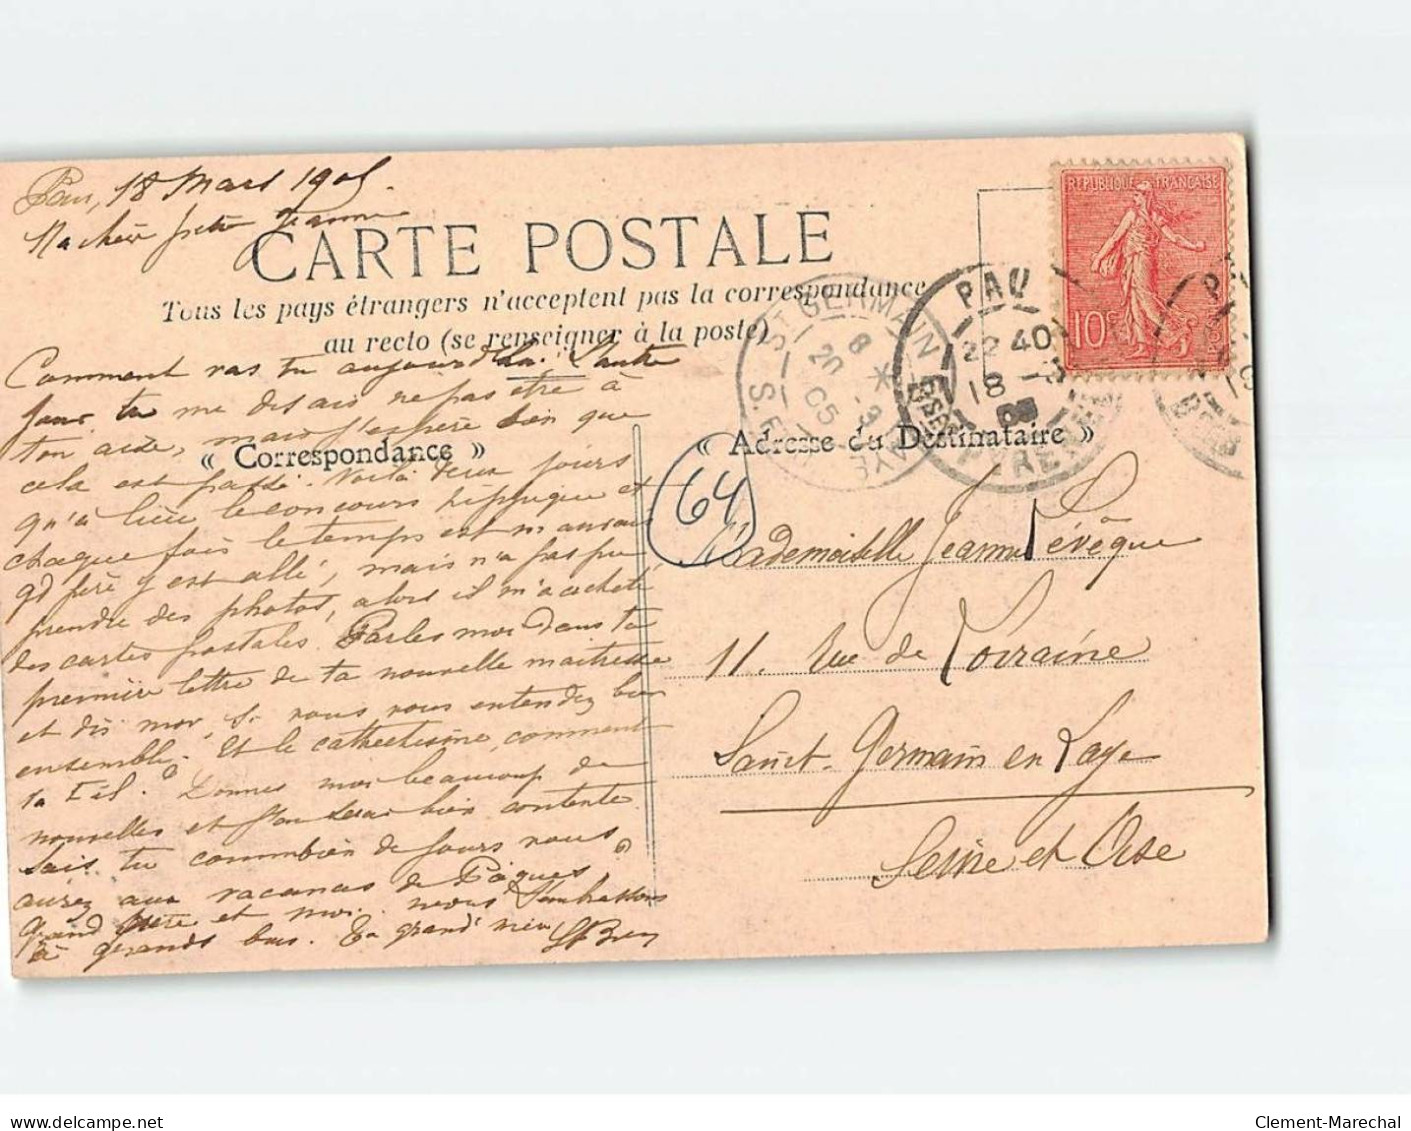 Pau, 18 Mars 1905.
Ma chère petite Jeanne
CARTE POSTALE
Tous les pays étrangers n'acceptent pas la correspondance
au recto (se renseigner à la poste)
Comment vas tu aujourd'hui. L'autre
jour tu me disais ne pas être à
ton aise, mais j'espère bien que
« Correspondance »
cela est passé. Voilà deux jours
qu'a lieu le concours hippique et
chaque fois le temps est mauvais
gd père y est allé, mais n'a pas pu
prendre des photos, alors il m'a acheté
des cartes postales. Parles moi dans ta
première lettre de ta nouvelle maitresse
et dis moi, si vous vous entendez bien
ensemble. Et le cathéchisme, comment
va t'il? Donnes moi beaucoup de
nouvelles et j'en serai bien contente
Sais tu combien de jours vous
aurez aux vacances de Pâques?
Grand père et moi nous t'embrassons
à grands bras. Ta grand'mère
REPUBLIQUE FRANÇAISE
10c
PAU
22 40
18 -3
05
ST GERMAIN EN LAYE
8 *
20 -3
05
« Adresse du Destinataire »
64
Mademoiselle Jeanne Lévêque
11. Rue de Lorraine
Saint-Germain en Laye
Seine et Oise
delcampe.net
Clement-Marechal